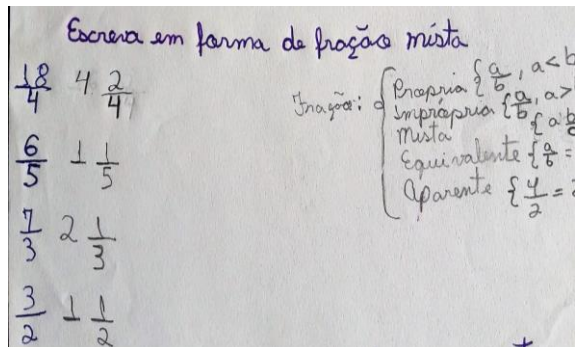 Escreva em forma de fração mista
18/4 4 2/4
6/5 1 1/5
7/3 2 1/3
3/2 1 1/2
Fração:
Própria {a/b, a<b
Imprópria {a/b, a>
Mista {a b/c
Equivalente {a/b =
Aparente {4/2 = 2